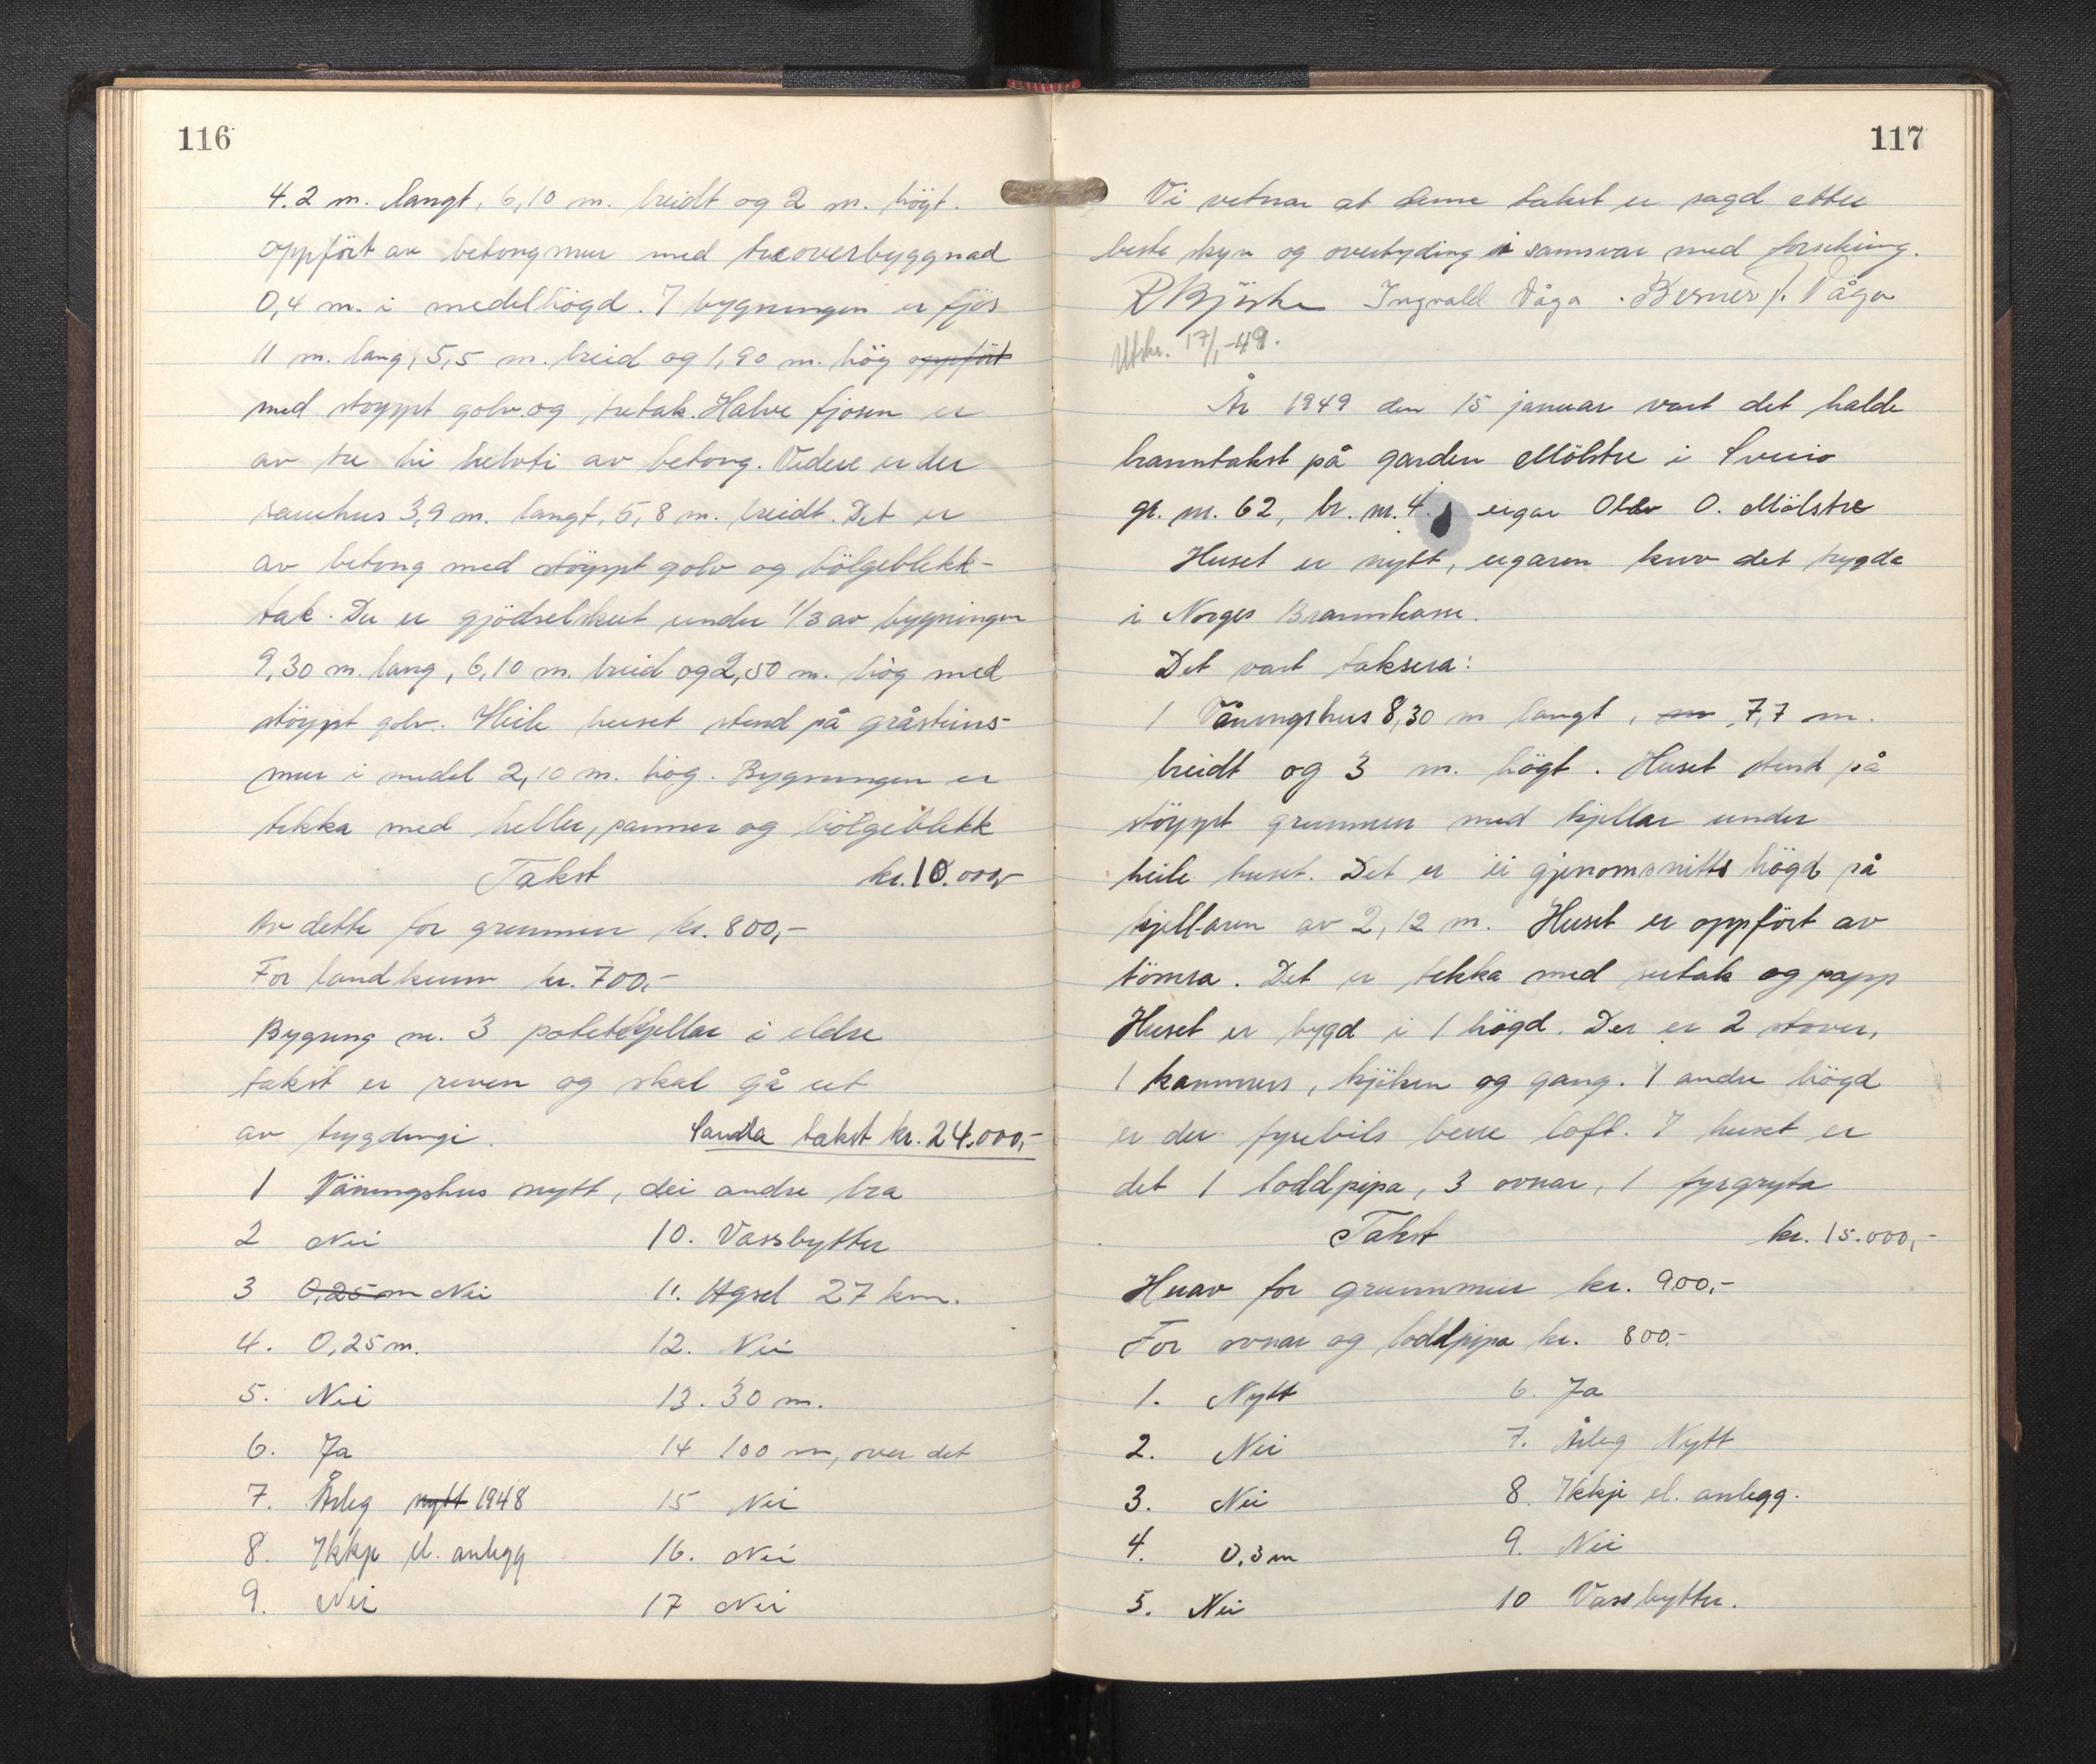 116
4.2 m. langt, 6,10 m. breidt og 2 m. högt.
oppfört av betongmur med treoverbyggnad
0,4 m. i medelhögd. I bygningen er fjös
11 m. lang, 5,5 m. breid og 1,90 m. hög oppfört
med stoypt golv og tretak. Halve fjosen er
av tre hi helvti av betong. Videre er der
sauehus 3,9 m. langt, 5,8 m. breidt. Det er
av betong med stöypt golv og bölgeblekk-
tak. Der er gjödselskut under 1/3 av bygningen
9,30 m. lang, 6,10 m. breid og 2,50 m. hög med
stöypt golv. Heile huset stend på gråsteins-
mur i medel 2,10 m. hög. Bygningen er
tekka med heller, panner og bölgeblekk
Takst kr. 10.000,-
Av dette for grunnmur kr. 800,-
For landkum kr. 700,-
Bygning nr. 3 potetkjellar i eldre
takst er reven og skal gå ut
av trygdingi. Samla takst kr. 24.000,-
1 Våningshus nytt, dei andre bra
2 Nei 10. Vassbytter
3 0,25 m Nei 11. Utgsel 27 km.
4. 0,25 m. 12. Nei
5. Nei 13. 30 m.
6. Ja 14 100 m, over det
7. Årleg nytt 1948 15 Nei
8. Ikkje el. anlegg 16. Nei
9. Nei 17 Nei
117
Vi vitnar at denne takst er sagd etter
beste skyn og overtyding i samsvar med forsikring.
R Bjørke Ingvald Våga. Berner J. Våga
Utskr. 17/1-49.
År 1949 den 15 januar vart det halde
branntakst på garden Mölstre i Sveio
gr. nr. 62, br. nr. 4. eigar Olav O. Mölstre
Huset er nytt, eigaren krev det trygda
i Norges Brannkasse.
Det vart taksera:
1 Våningshus 8,30 m langt, m 7,7 m.
breidt og 3 m. högt. Huset stend på
stöypt grunnmur med kjellar under
heile huset. Det er ei gjenomsnitts högd på
kjellaren av 2,12 m. Huset er oppfört av
tömra. Det er tekka med sutak og papp
Huset er bygd i 1 högd. Der er 2 stover,
1 kammers, kjöken og gang. I andre högd
er der fyrebils berre loft. I huset er
det 1 loddpipa, 3 ovnar, 1 fyrgryta
Takst kr. 15.000,-
Herav for grunnmur kr. 900,-
For ovnar og loddpipa kr. 800.-
1. Nytt 6. Ja
2. Nei 7. Årleg Nytt
3. Nei 8. Ikkje el. anlegg.
4. 0,3 m 9. Nei
5. Nei 10 Vassbytter.